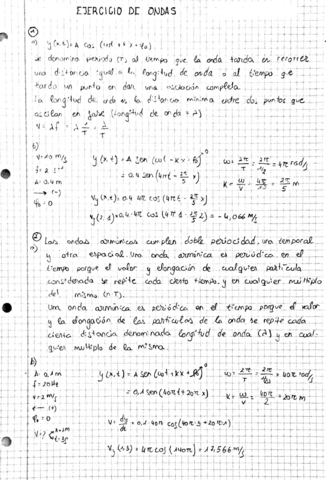 EJERCICIO DE ONDAS
①
a) y(x,t)=A cos (ωt + k x + φ₀)
se denomina periodo (T) al tiempo que la onda tarda en recorrer
una distancia igual a la longitud de onda o al tiempo que
tarda un punto en dar una oscilación completa.
la longitud de onda es la distancia mínima entre dos puntos que
oscilan en fase (longitud de onda = λ)
b)
v=10 m/s
f=2 s⁻¹
A=0.4 m
→ (-)
φ₀=0
y(x,t)=A sen (ωt - kx
=0.4 sen (4πt - 2π/5 x)
② Las ondas armónicas cumplen doble periocidad, una temporal
y otra espacial. Una onda armónica es periódica en el
tiempo porque el valor y elongación de cualquier partícula
considerada se repite cada cierto tiempo y en cualquier múltiplo
del mismo (n·T).
Una onda armónica es periódica en el tiempo porque el valor
y la elongación de las partículas de la onda se repite cada
cierta distancia denominada longitud de onda (λ) y en cual-
quier múltiplo de la misma.
b)
A=0,1m
f=20Hz
v=2 m/s
φ₀=0
y(x,t)=A sen (ωt + kx
=0,1 sen (40πt + 20πx)
v= dy/dt =0,1·40π cos (